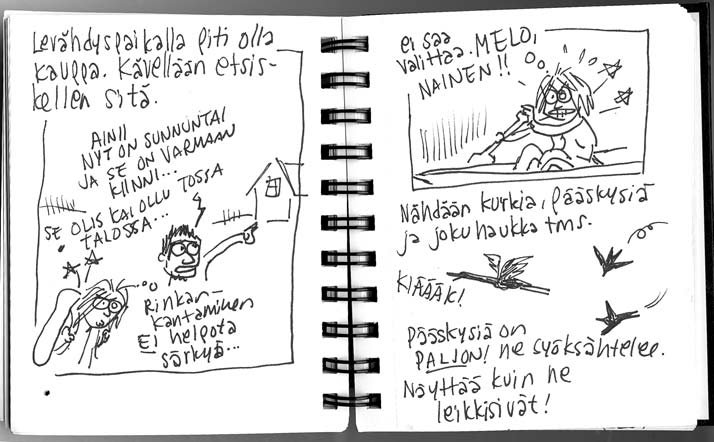 Levähdyspaikalla piti olla
kauppa. Kävellään etsis-
kellen sitä.
AINII
NYT ON SUNNUNTAI
JA SE ON VARMAAN
KIINNI...
SE OLIS KAI OLLU TOSSA
TALOSSA...
Rinkan-
kantaminen
EI helpota
särkyä...
ei saa
valittaa. MELO,
NAINEN!!
Nähdään kurkia, pääskysiä
ja joku haukka tms.
KIÄÄÄK!
Pääskysiä on
PALJON! ne syöksähtelee.
Näyttää kuin ne
leikkisivät!